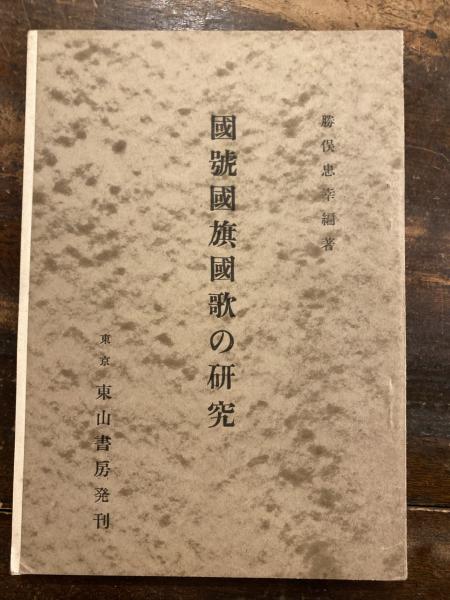 勝俣忠幸編著
國號國旗國歌の研究
東京 東山書房発刊